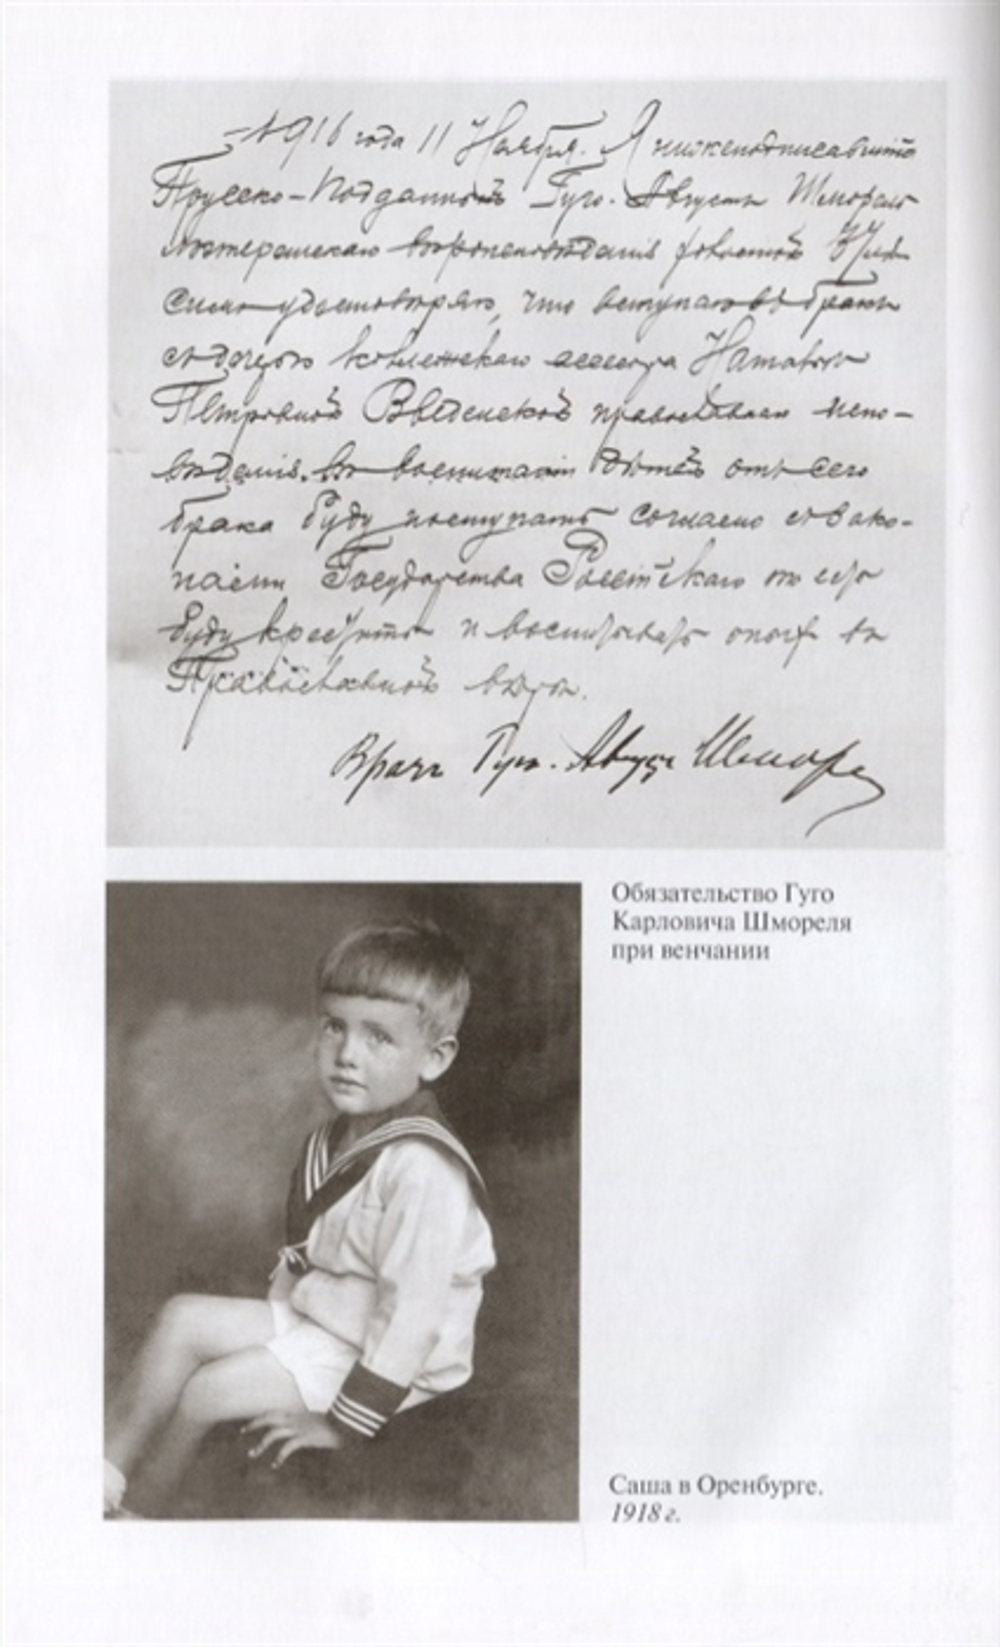 1916 года 11 Ноября. Я нижеподписавшійся
Прусско-Подданный Гуго-Августъ Шморель
лютеранскаго вѣроисповѣданія
Симъ удостовѣряю, что вступаю въ бракъ
съ дочерью коллежскаго ассесора Наталіею
Петровной Введенской православнаго испо-
вѣданія. въ воспитаніи дѣтей отъ сего
брака буду поступать согласно съ зако-
нами Государства Россійскаго то есть
буду крестить и воспитывать оныхъ въ
Православной вѣрѣ.
Врачъ Гуго-Августъ Шморель
Обязательство Гуго
Карловича Шмореля
при венчании
Саша в Оренбурге.
1918 г.